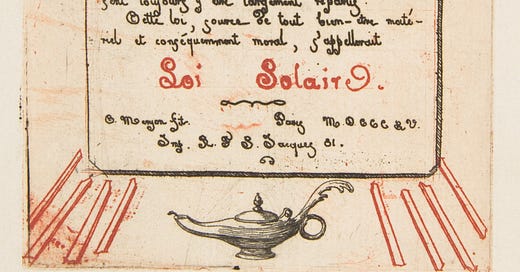 toujours y être largement répartis.
Cette loi, source de tout bien-être maté-
riel et conséquemment moral, s'appellerait
Loi Solaire.
C. Meryon fit. Paris M.DCCC.L.V.
Imp. R. F. S. Jacques 81.